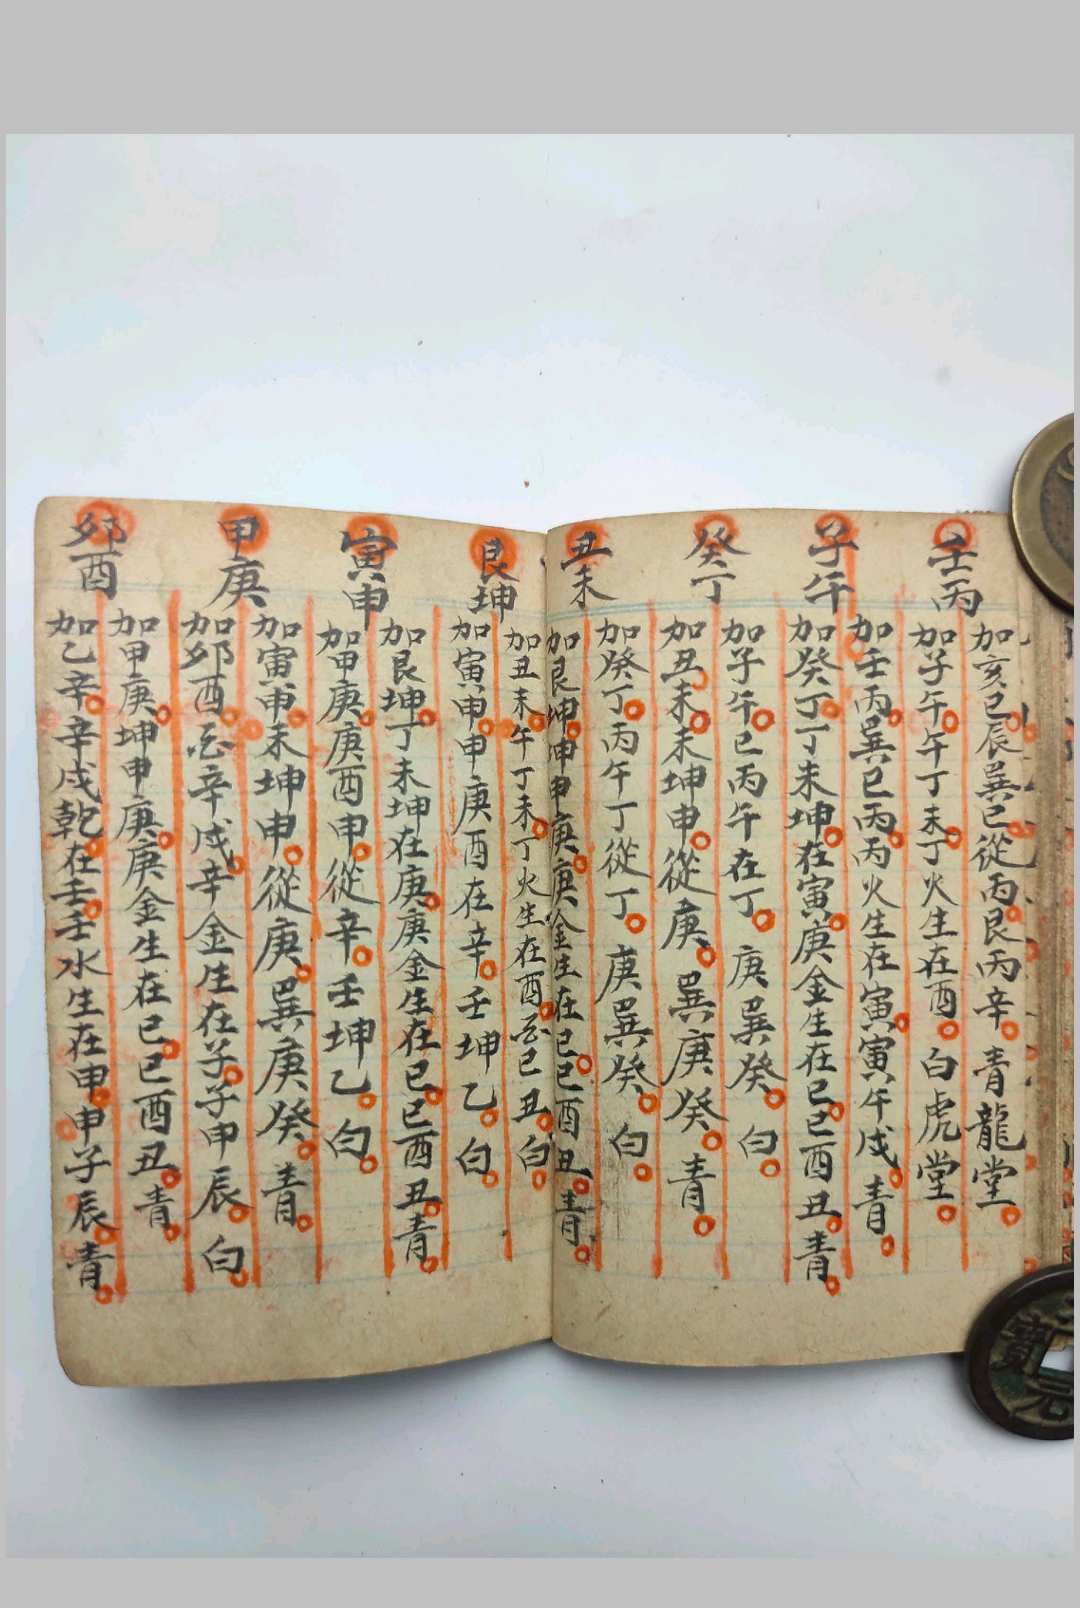 壬丙
加亥巳辰巽巳從丙艮丙辛青龍堂
加子午午丁未丁火生在酉白虎堂
子午
加壬丙巽巳丙丙火生在寅寅午戌青
加癸丁丁未坤在寅庚金生在巳巳酉丑青
癸丁
加子午巳丙午在丁庚巽癸白
加丑未未坤申從庚巽庚癸青
丑未
加癸丁丙午丁從丁庚巽癸白
加艮坤坤申庚庚金生在巳巳酉丑青
艮坤
加丑未午丁未丁火生在酉巳丑白
加寅申申庚酉在辛壬坤乙白
寅申
加艮坤丁未坤在庚庚金生在巳巳酉丑青
加甲庚庚酉申從辛壬坤乙白
甲庚
加寅申未坤申從庚巽庚癸青
加卯酉辛戌辛金生在子子申辰白
卯酉
加甲庚坤申庚庚金生在巳巳酉丑青
加乙辛辛戌乾在壬壬水生在申申子辰青
元寶